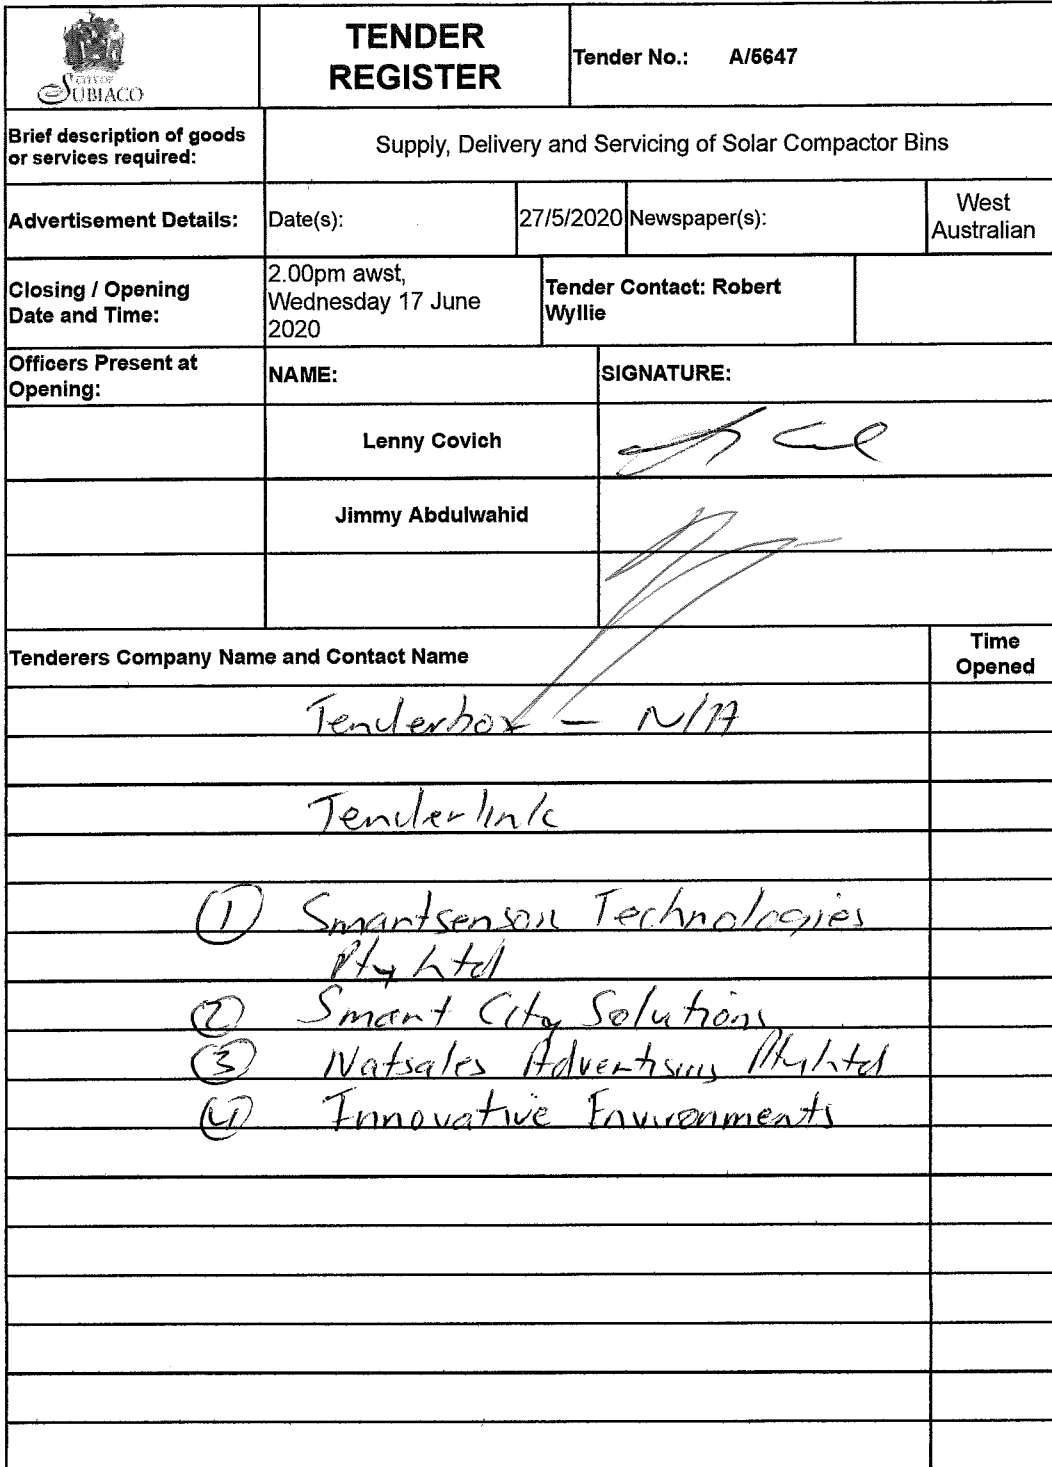 CITY OF
SUBIACO
TENDER
REGISTER
Tender No.: A/5647
Brief description of goods
or services required:
Supply, Delivery and Servicing of Solar Compactor Bins
Advertisement Details:
Date(s):
27/5/2020
Newspaper(s):
West
Australian
Closing / Opening
Date and Time:
2.00pm awst,
Wednesday 17 June
2020
Tender Contact: Robert
Wyllie
Officers Present at
Opening:
NAME:
SIGNATURE:
Lenny Covich
Jimmy Abdulwahid
Tenderers Company Name and Contact Name
Time
Opened
Tenderbox – N/A
Tenderlink
① Smartsenson Technologies
Pty Ltd
② Smart City Solutions
③ Natsales Advertising Pty Ltd
④ Innovative Environments